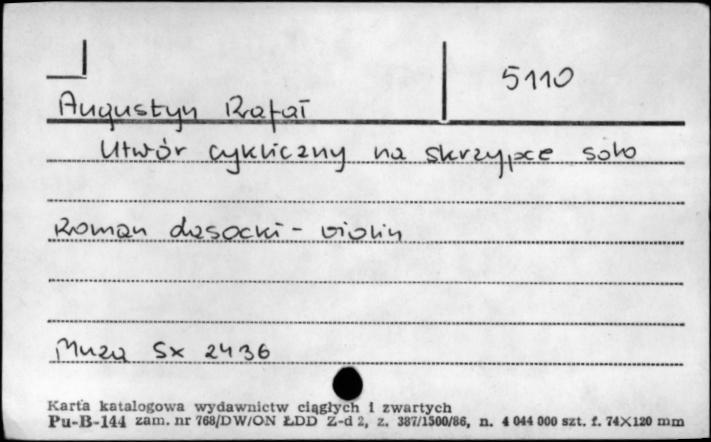 5110
Augustyn Rafał
Utwór cykliczny na skrzypce solo
Roman Lasocki - violin
Muza Sx 2436
Karta katalogowa wydawnictw ciągłych i zwartych
Pu-B-144 zam. nr 768/DW/ON ŁDD Z-d 2, z. 387/1500/86, n. 4 044 000 szt. f. 74×120 mm